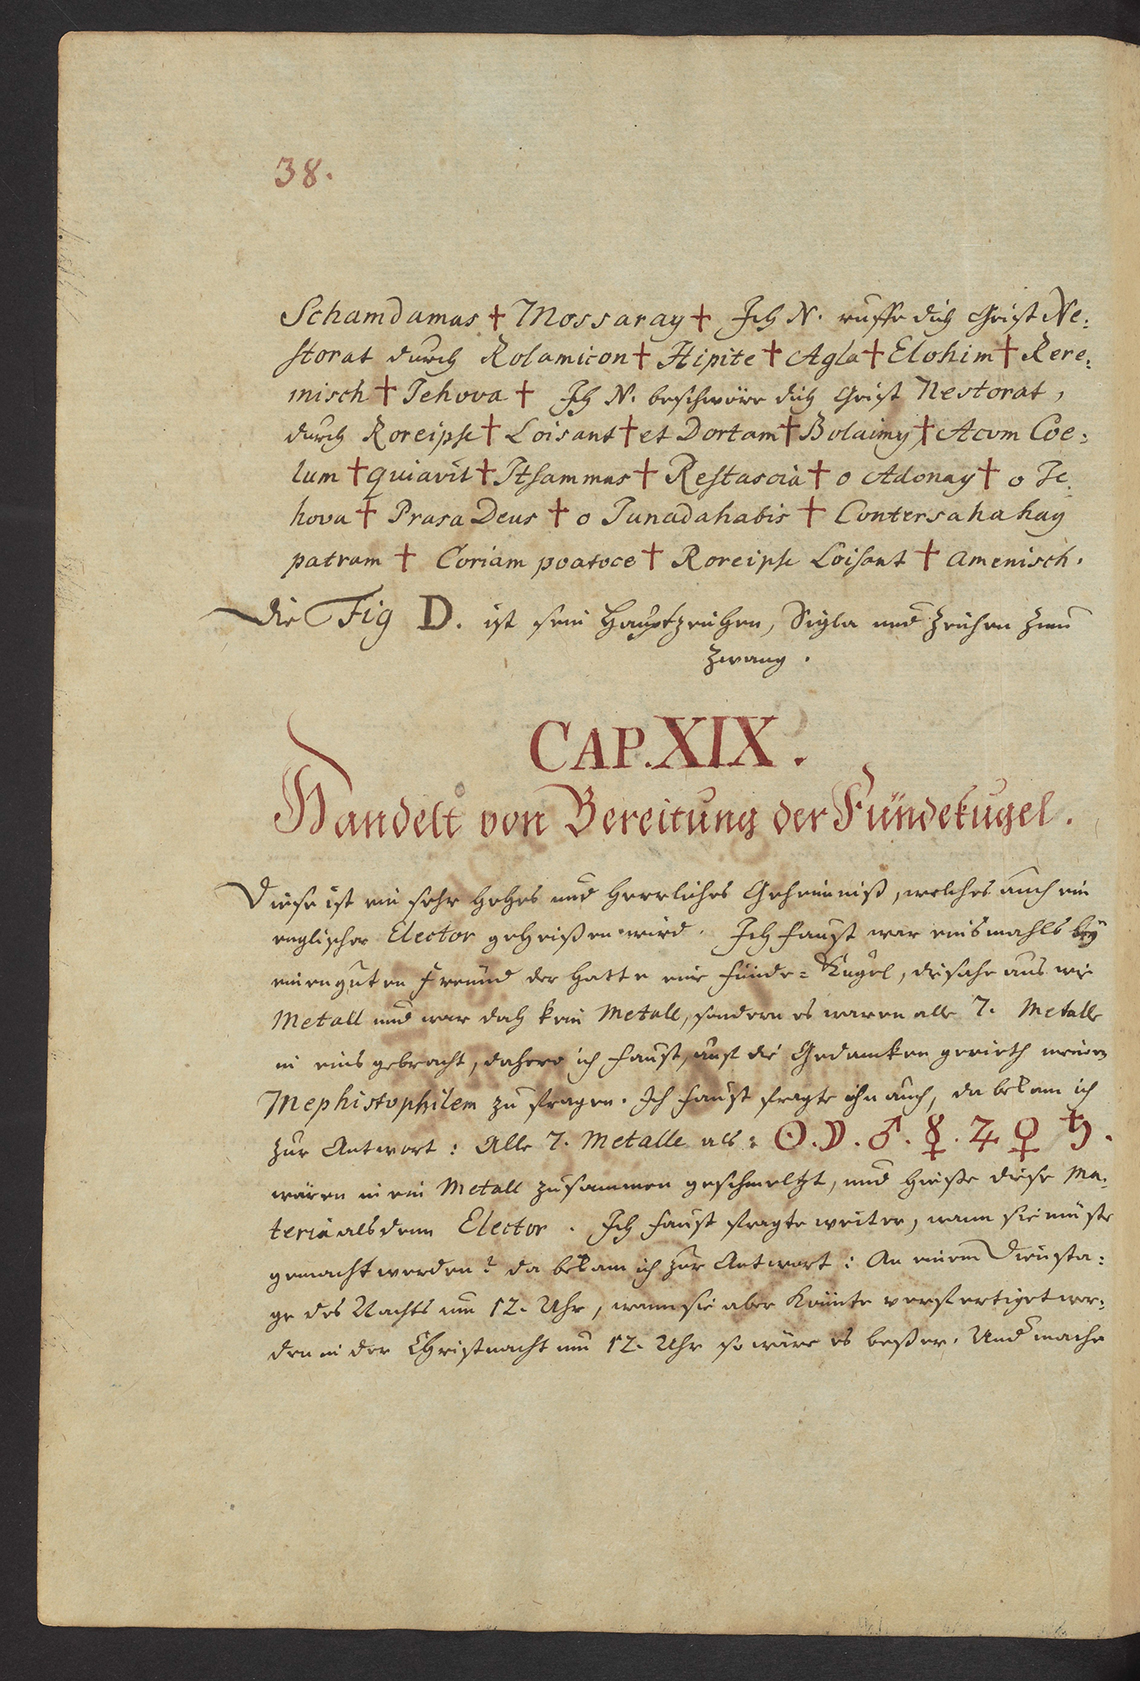 38.
Schamdamas † Mossaray † Ich N. ruffe dich Geist Ne⸗
storat durch Rolamicon † Hipite † Agla † Elohim † Rere⸗
misch † Jehova † Ich N. beschwöre dich Geist Nestorat,
durch Roreipse † Loisant † et Dortam † Bolaimy † Acom Coe⸗
lum † quiavit † Itsammas † Restascia † o Adonay † o Je⸗
hova † Prasa Deus † o Junadahabis † Contersahahay
patram † Coriam poatoce † Roreipse Loisant † amenisch.
Die Fig D. ist sein Hauptzeichen, Sigla und Zeichen zum
Zwang.
CAP. XIX.
Handelt von Bereitung der Fündekugel.
Diese ist ein sehr hohes und herrliches Geheimniß, welches auch ein
englischer Elector geheißen wird. Ich Faust war einsmahls bey
einen guten Freünd der hatte eine Fünde⸗Kugel, die sahe aus wie
Metall und war doch kein Metall, sondern es waren alle 7. Metalle
in eins gebracht, dahero ich Faust, auf die Gedancken gerieth meinen
Mephistophilem zu fragen. Ich Faust fragte ihn auch, da bekam ich
zur Antwort: Alle 7. Metalle als: ☉. ☽. ♂. ☿. ♃ ♀ ♄.
wären in ein Metall zusammen geschmeltzt, und hieße diese Ma⸗
teria alsdenn Elector. Ich Faust fragte weiter, wann sie müste
gemacht werden? da bekam ich zur Antwort: An einem Diensta⸗
ge des Nachts um 12. Uhr, wann sie aber könnte verfertiget wer⸗
den in der Christnacht um 12. Uhr so wäre es beßer. Und mache